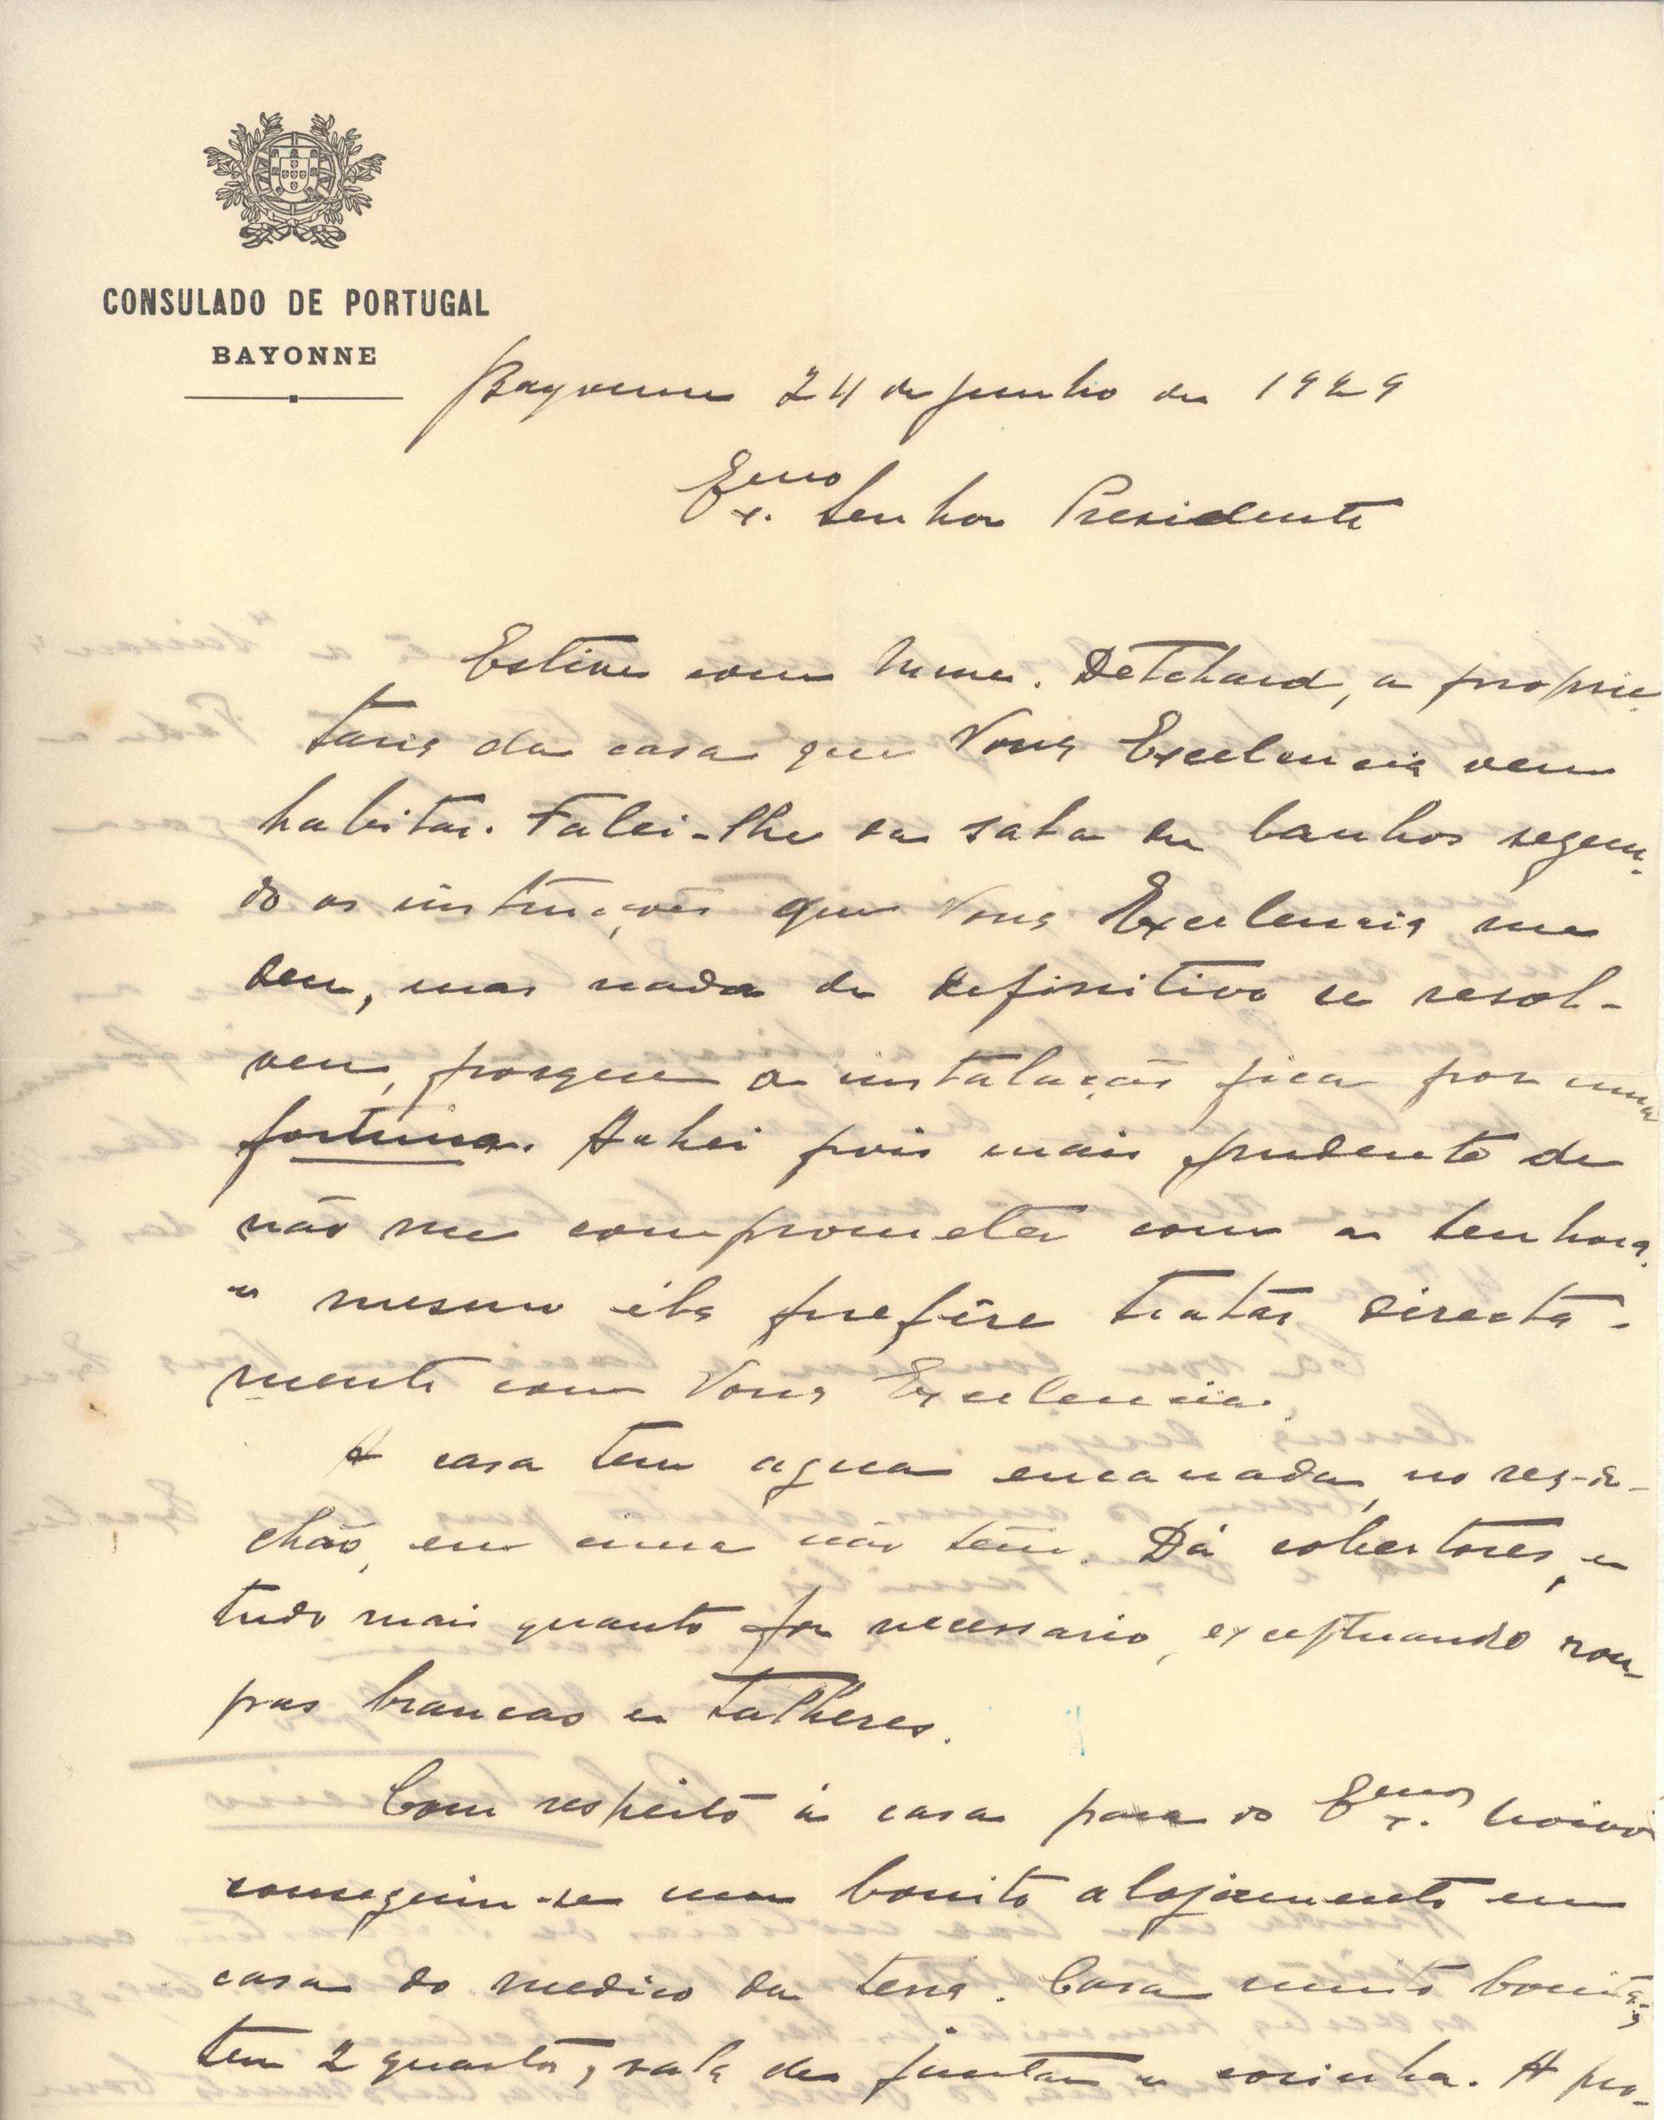 CONSULADO DE PORTUGAL
BAYONNE
Bayonne 24 de junho de 1929
Exmo. Senhor Presidente
Estive com Mme. Detchard, a proprie-
taria da casa que Vossa Excelencia vem
habitar. Falei-lhe da sala de banhos segun-
do as instruções que Vossa Excelencia me
deu, mas nada de definitivo se resol-
veu, porque a instalação fica por uma
fortuna. Achei pois mais prudente de
não me comprometer com a senhora,
e mesmo ela prefére tratar directa-
mente com Vossa Excelencia.
A casa tem agua encanada, no rez-do-
chão, em cima não tem. Dá cobertores, e
tudo mais quanto for necessario, exceptuando rou-
pas brancas e talheres.
Com respeito á casa para os Exmos. noivos
conseguiu-se um bonito alojamento em
casa do medico da terra. Casa muito bonita,
tem 2 quartos, sala de jantar e cosinha. A pro-